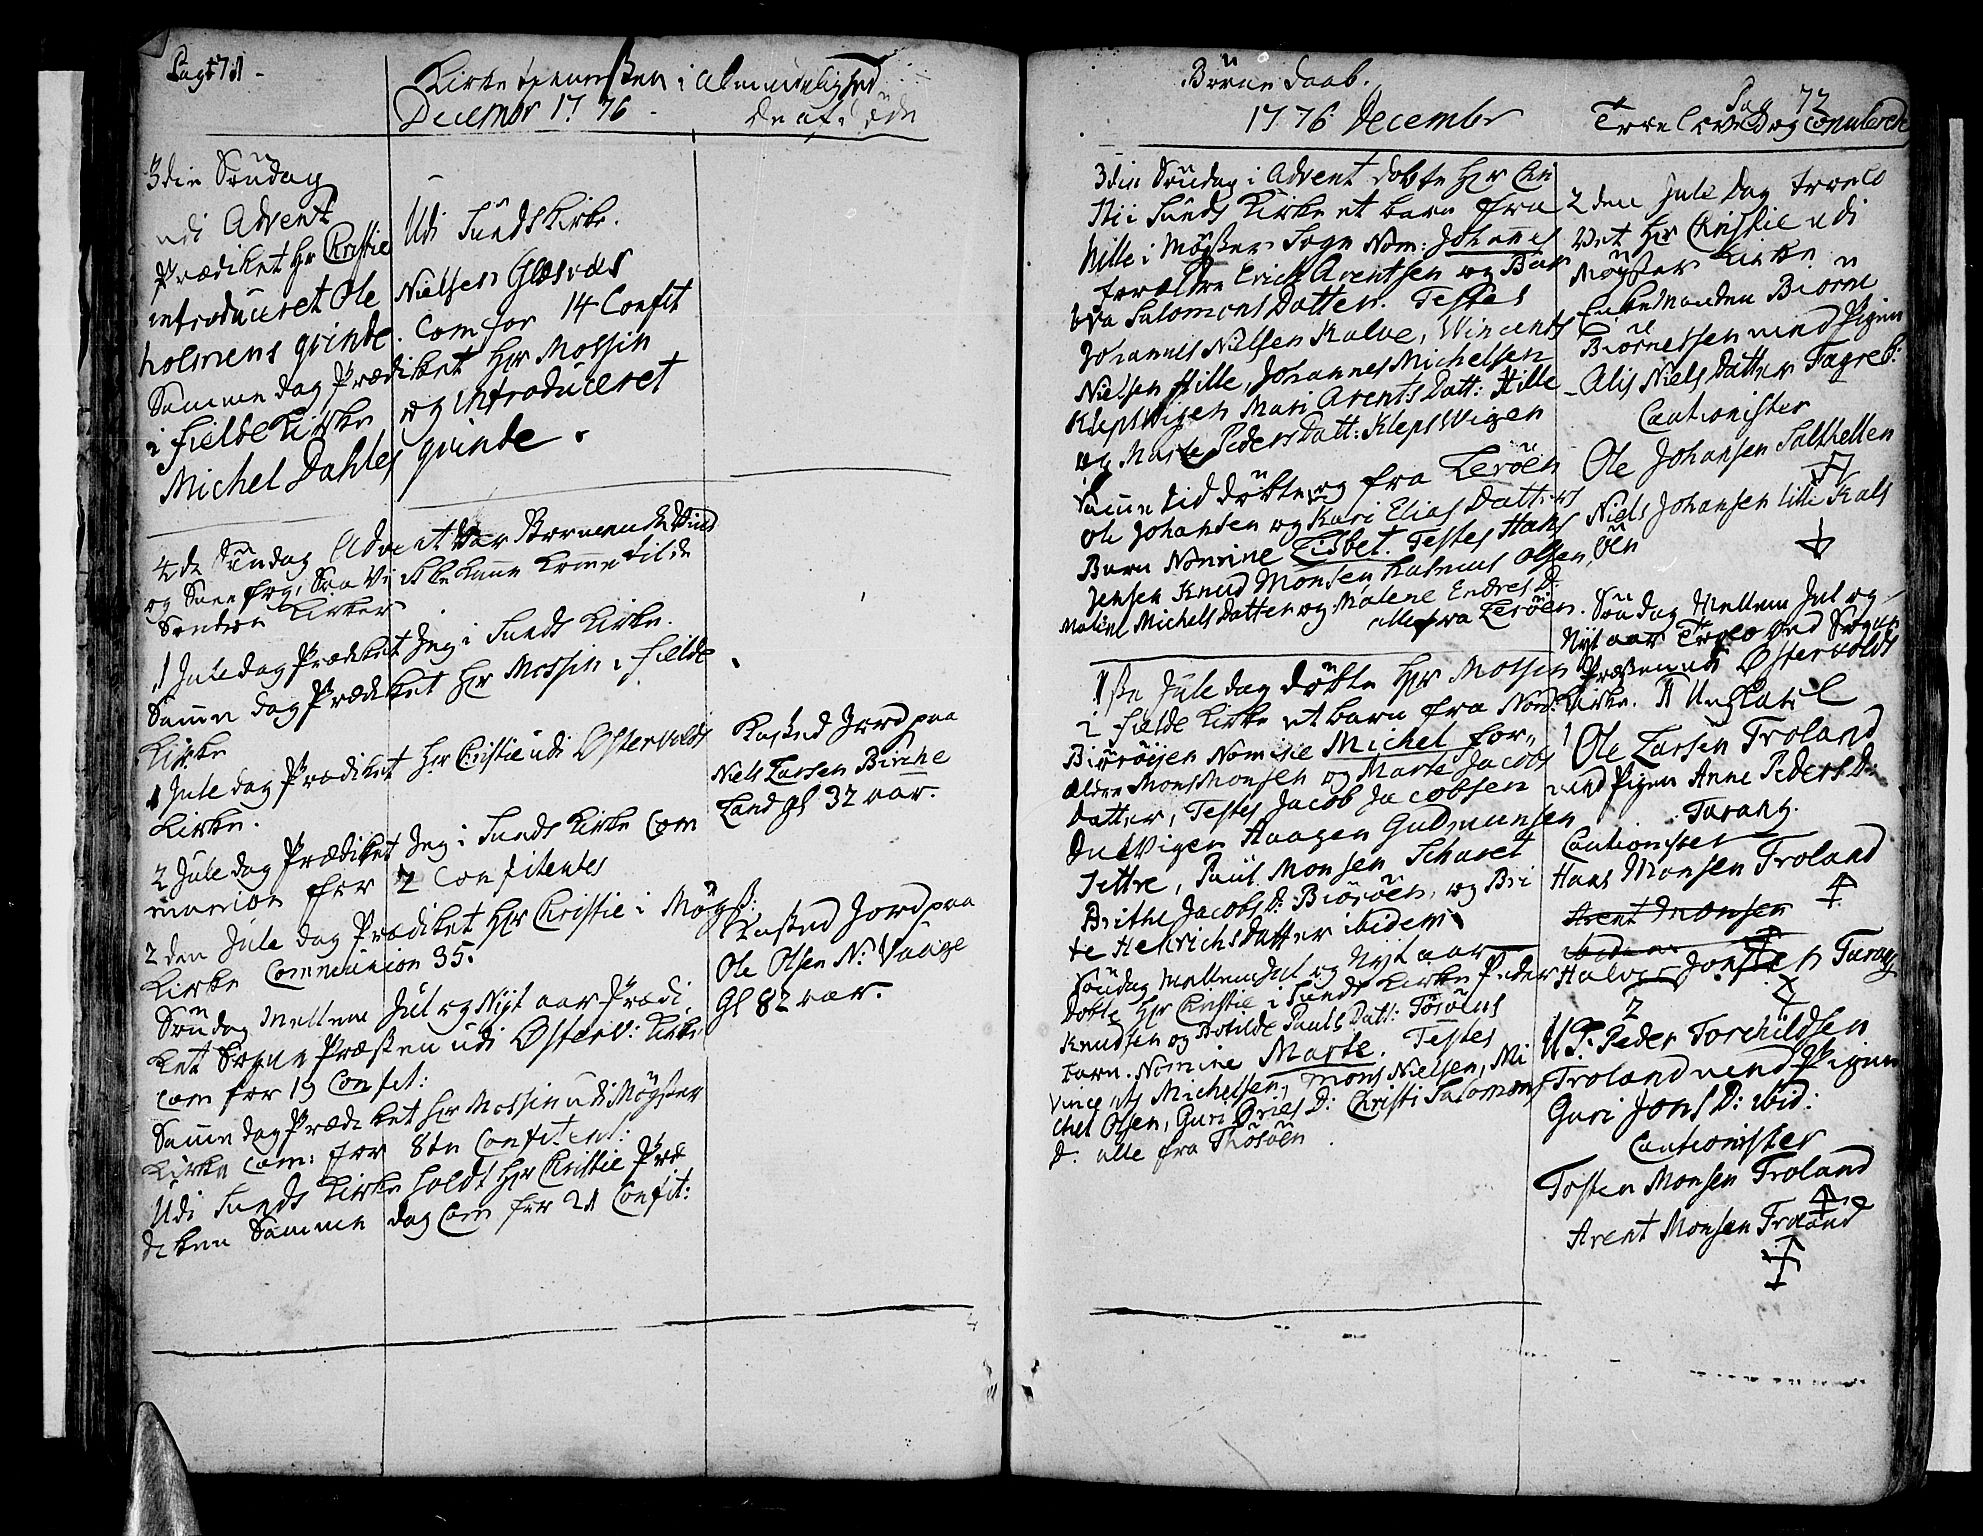 Pag: 71
Kirke tienesten i Almindelighed
December 1776
De afdöde
3die Söndag
udi Advent
Prædiket Hr Christie
Udi Sunds Kirke.
introduceret Ole Nielsen Glesvær
holmens qvinde. Com for 14 Confit
Samme dag Prædiket Hr Mossin
i Fielde Kirke og introduceret
Michel Dahles qvinde.
4de Söndag Advent var Stormende Vind
og Snee fog, Saa Vi ikke kunne komme til de
Söndre Kirker
1 Juledag Prædiket Jeg i Sunds Kirke.
Samme dag Prædiket Hr Mossin i Fielde
Kirke
1 Jule dag Prædiket Hr Christie udi Östervolds
Kirke.
2 Jule dag Prædiket Jeg i Sunds Kirke Com
munion for 2 Confitentes
2 den Jule dag Prædiket Hr Christie i Mögst:
Kirke Communion 35.
Söndag Mellem Jul og Nyt aar Prædi
ket Sogne Præsten udi Österv: Kirke
Com for 19 Confit:
Samme dag Prædiket Hr Mossin udi Mögster
Kirke Com: for 8te Confitent:
Udi Sunds Kirke holdt Hr Christie Præ
diken Samme dag Com for 21 Confit:
Kasted Jord paa
Niels Larsen Birche
Land gl 32 aar.
Kasted Jord paa
Ole Olsen N: Vaage
Gl 82 aar.
Börne Daab.
1776 December
3die Söndag i Advent döbte Hr Chri
stie i Sunds Kirke et barn fra
Hille i Mögster Sogn Nom: Johannes
forældre Erich Arentsen og Bar
bra Salomons Datter. Testes
Johannes Nielsen Kalve, Vincents
Nielsen Hille, Johannes Michelsen
Klepsvigen Mari Arents Datt: Hille
og Marte Peders Datt: Kleps Wigen
Samme tid döbte og fra Leröen
Ole Johansen og Kari Elias Datters
Barn Nomine Lisbet. Testes Hans
Jensen Knud Monsen Rasmus Olsen,
Malene Michels Datter og Malene Endres D:
alle fra Leröen.
1ste Jule dag döbte Hr Mossin
i Fielde Kirke et barn fra Nord
Biöröyen Nomine Michel for,,
ældre Mons Monsen og Marte Jacobs
Datter, Testes Jacob Jacobsen
Dulvigen Haagen Gudmunsen
Tettre, Paul Monsen Scharet
Brithe Jacobs D: Biöröen, og Bri
te Henrichs Datter ibidem
Söndag Mellem Jul og Nyt aar
Döbte Hr Christie i Sunds Kirke Peder
Knudsen og Botilde Pauls Datt: Töröens
barn. Nomine Marte. Testes
Vincents Michelsen, Mons Nielsen, Mi
chel Olsen, Guri Bries D: Christi Salomons
D: alle fra Thösöen
Pag 72
Troelovede og Copulerede
2 den Jule Dag troelo
vet Hr Christie udi
Mögster Kirke
Enkemanden Biörn
Biörnessen med Pigen
Alis Niels Datter Fagreb:
Cautionister
Ole Johansen Salthellen
Niels Johansen Lille Kals
öen
Söndag Mellem Jul og
Nyt aar Troeloved Sogne
Præsten udi Östervolds
Kirke.
1 Ole Larsen Troland
med Pigen Anne Peders D:
Turang.
Cautionister
Hans Monsen Troland
Arent Monsen
ibidem
Halver p Turang
2
Peder Torchildsen
Troland med Pigen
Guri Jons D: ibid:
Cautionister
Tosten Monsen Troland
Arent Monsen Troland